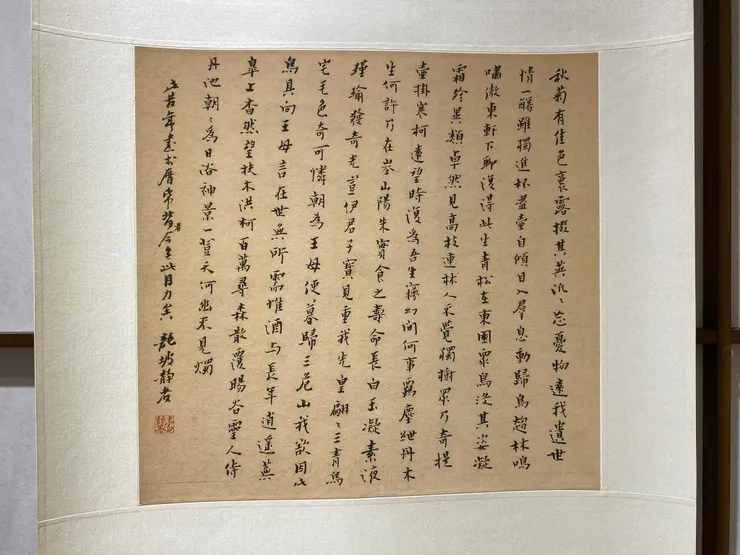 秋菊有佳色裛露掇其英汎〻忘憂物遠我遺世
情一觴雖獨進杯盡壺自傾日入羣息動歸鳥趨林鳴
嘯傲東軒下聊復得此生青松在東園眾鳥沒其姿凝
霜殄異類卓然見高枝連林人不覺獨樹眾乃奇提
壺掛寒柯遠望時復為吾生夢幻間何事羈塵紲丹木
生何許乃在峚山陽朱實食之壽命長白玉凝素液
瑾瑜發奇光豈伊君子寶見重我先皇翩〻三青鳥
毛色奇可憐朝為王母使暮歸三危山我欲因此
鳥具向王母言在世無所需惟酒與長年逍遙蕪
皋上杳然望扶木洪柯百萬尋森散覆暘谷靈人侍
丹池朝〻為日浴神景一登天何幽不見燭